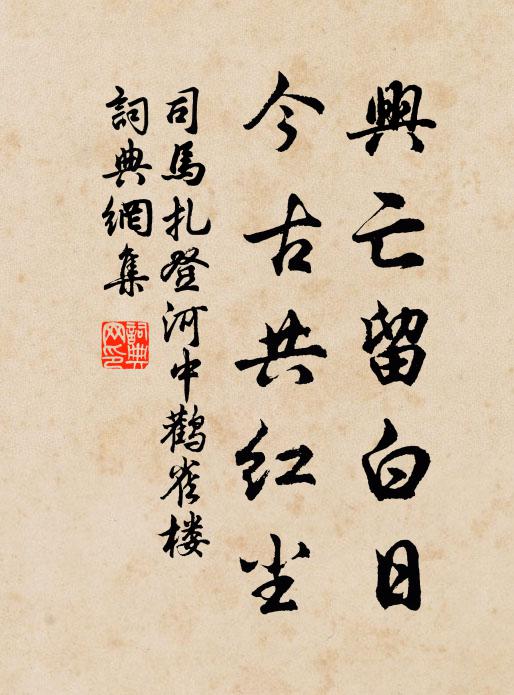 興亡留白日
今古共红尘
司馬扎登河中鸛雀楼
詞典網集
詞典网印